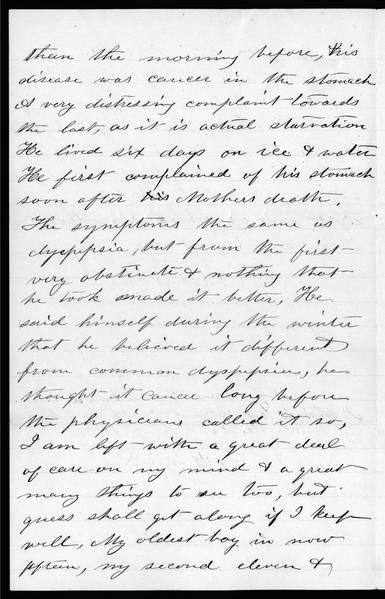 than the morning before, this
disease was cancer in the stomach
A very distressing complaint towards
the last, as it is actual starvation
He lived six days on ice & water
He first complained of his stomach
soon after his Mothers death,
The symptoms the same as
dyspepsia, but from the first
very obstinate & nothing that
he took made it better, He
said himself during the winter
that he believed it different
from common dyspepsia, he
thought it cancer long before
the physicians called it so,
I am left with a great deal
of care on my mind & a great
many things to see too, but
guess shall get along if I keep
well, My oldest boy in now
fifteen, my second eleven &